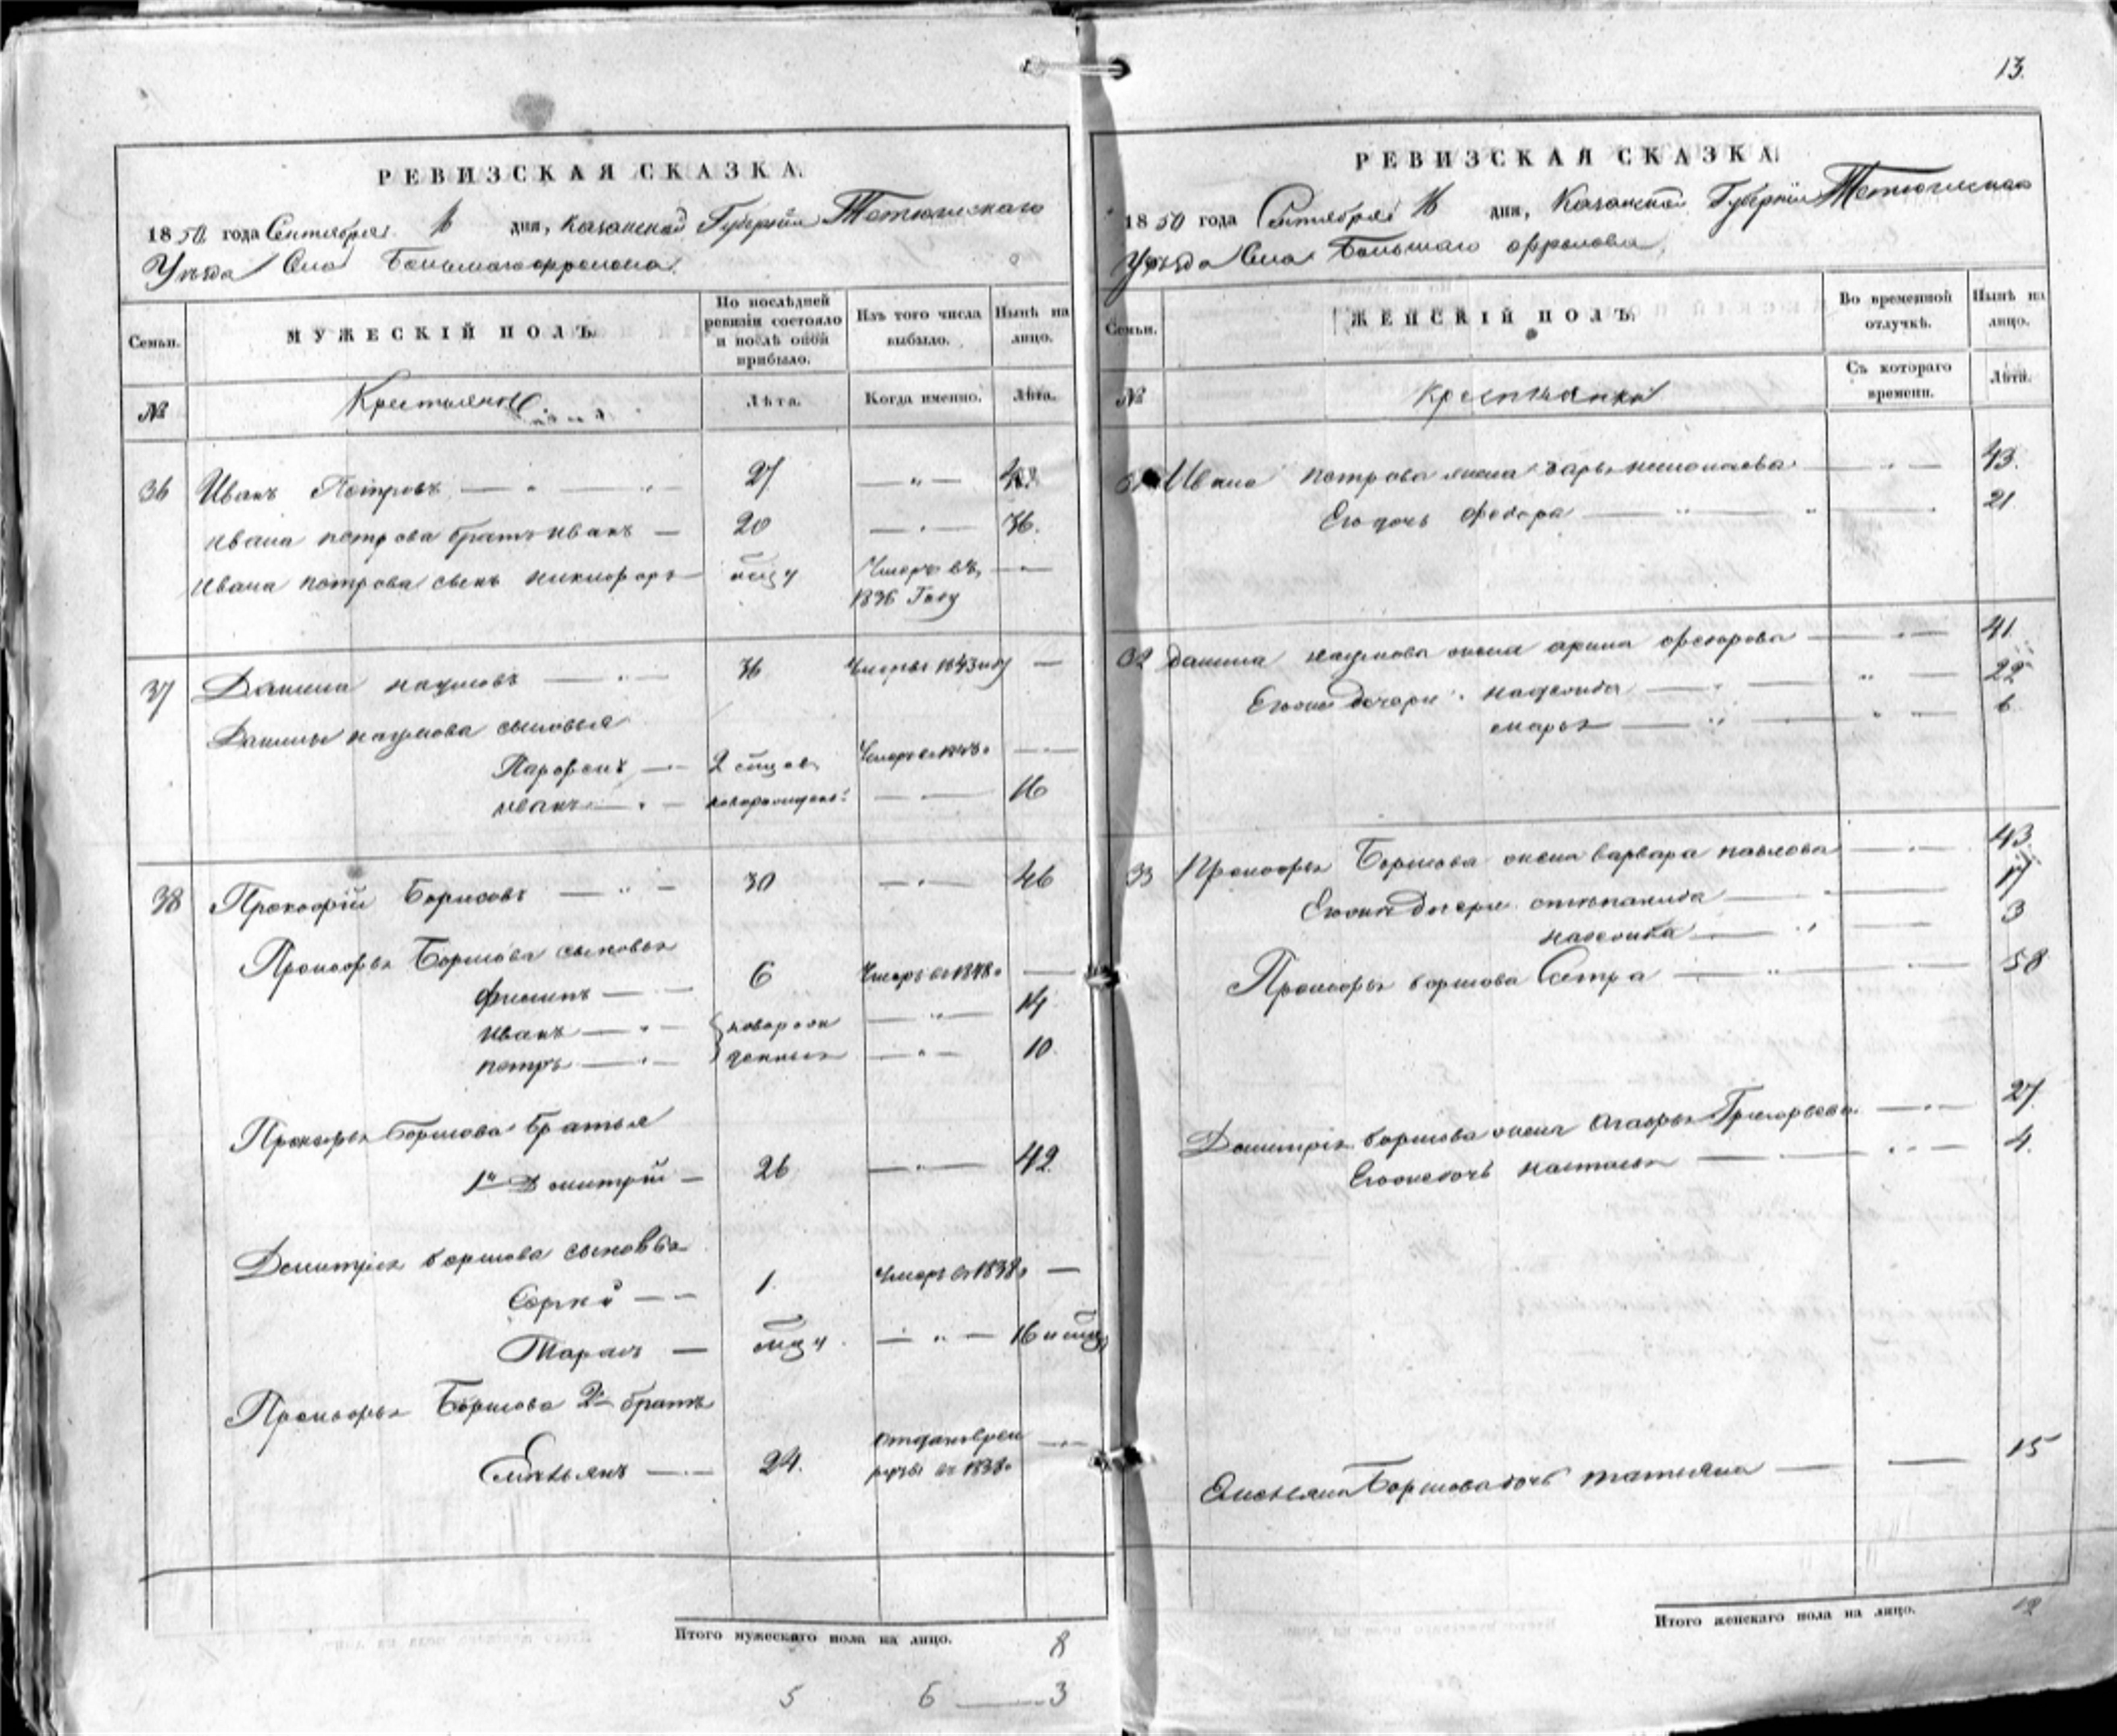 13.
РЕВИЗСКАЯ СКАЗКА.
1850 года Сентября 16 дня, Казанской Губернiи Тетюшскаго
Уѣзда Села Большагофролова.
Семьи. МУЖЕСКІЙ ПОЛЪ. По послѣдней ревизіи состояло и послѣ оной прибыло. Изъ того числа выбыло. Нынѣ на лицо.
№ Крестьяне Лѣта. Когда именно. Лѣта.
36 Иванъ Петровъ — " — " 27 — " — 43.
ивана петрова братъ иванъ — 20 — " — 36.
ивана петрова сынъ никифоръ — Умеръ въ —
1836 Году
37 Данила наумовъ — " — 36 Умеръ 1843 году —
Данилы наумова сыновья
Парфенъ — 2 Умеръ —
иванъ — " — новорожден: — — 16
38 Прокофій Борисовъ — " — 30 — " — 46
Прокофья Борисова сыновья
филипъ — — 6 Умеръ въ 1848. —
иванъ — " — новорож — " — 14
петръ — " — денныя — " — 10.
Прокофья Борисова братья
1й Дмитрій — 26 — " — 42.
Дмитрiя борисова сыновья
Сергей — — 1. Умеръ въ 1838. —
Тарасъ — — " — 16
Прокофья Борисова 2й братъ
Емельянъ — 24. отданъ врек
руты въ 1838. —
Итого мужескаго пола на лицо. 8
5 6 — 3
РЕВИЗСКАЯ СКАЗКА.
1850 года Сентября 16 дня, Казанской Губернiи Тетюшскаго
Уѣзда Села Большаго фролова.
Семьи. ЖЕНСКІЙ ПОЛЪ. Во временной отлучкѣ. Нынѣ на лицо.
№ Крестьянки Съ котораго времени. Лѣта.
Ивана петрова жена дарья — " — 43.
Его дочь федора — " — " — 21
Данила наумова жена арина федорова — " — 41.
Егоже дочери надежда — " — " — 22
марья — " — " — 6.
Прокофья Борисова жена варвара павлова — " — 43.
Егоже дочери степанида — " — 17
надежда — " — 3
Прокофья борисова Сестра — " — " — 58
Дмитрiя борисова жена Агафья Григорьева — " — 27
Егоже дочь настасья — — " — 4.
Емельяна Борисова дочь татьяна — — 15
Итого женскаго пола на лицо. 12